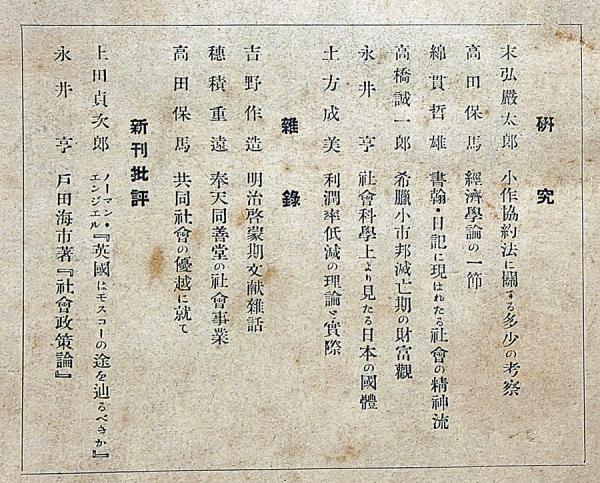 研究
末弘嚴太郎 小作協約法に關する多少の考察
高田保馬 經濟學論の一節
綿貫哲雄 書翰・日記に現はれたる社會の精神流
高橋誠一郎 希臘小市邦滅亡期の財富觀
永井亨 社會科學上より見たる日本の國體
土方成美 利潤率低減の理論と實際
雜錄
吉野作造 明治啓蒙期文献雜話
穗積重遠 奉天同善堂の社會事業
高田保馬 共同社會の優越に就て
新刊批評
上田貞次郎 ノーマン・エンジエル『英國はモスコーの途を辿るべきか』
永井亨 戸田海市著『社會政策論』